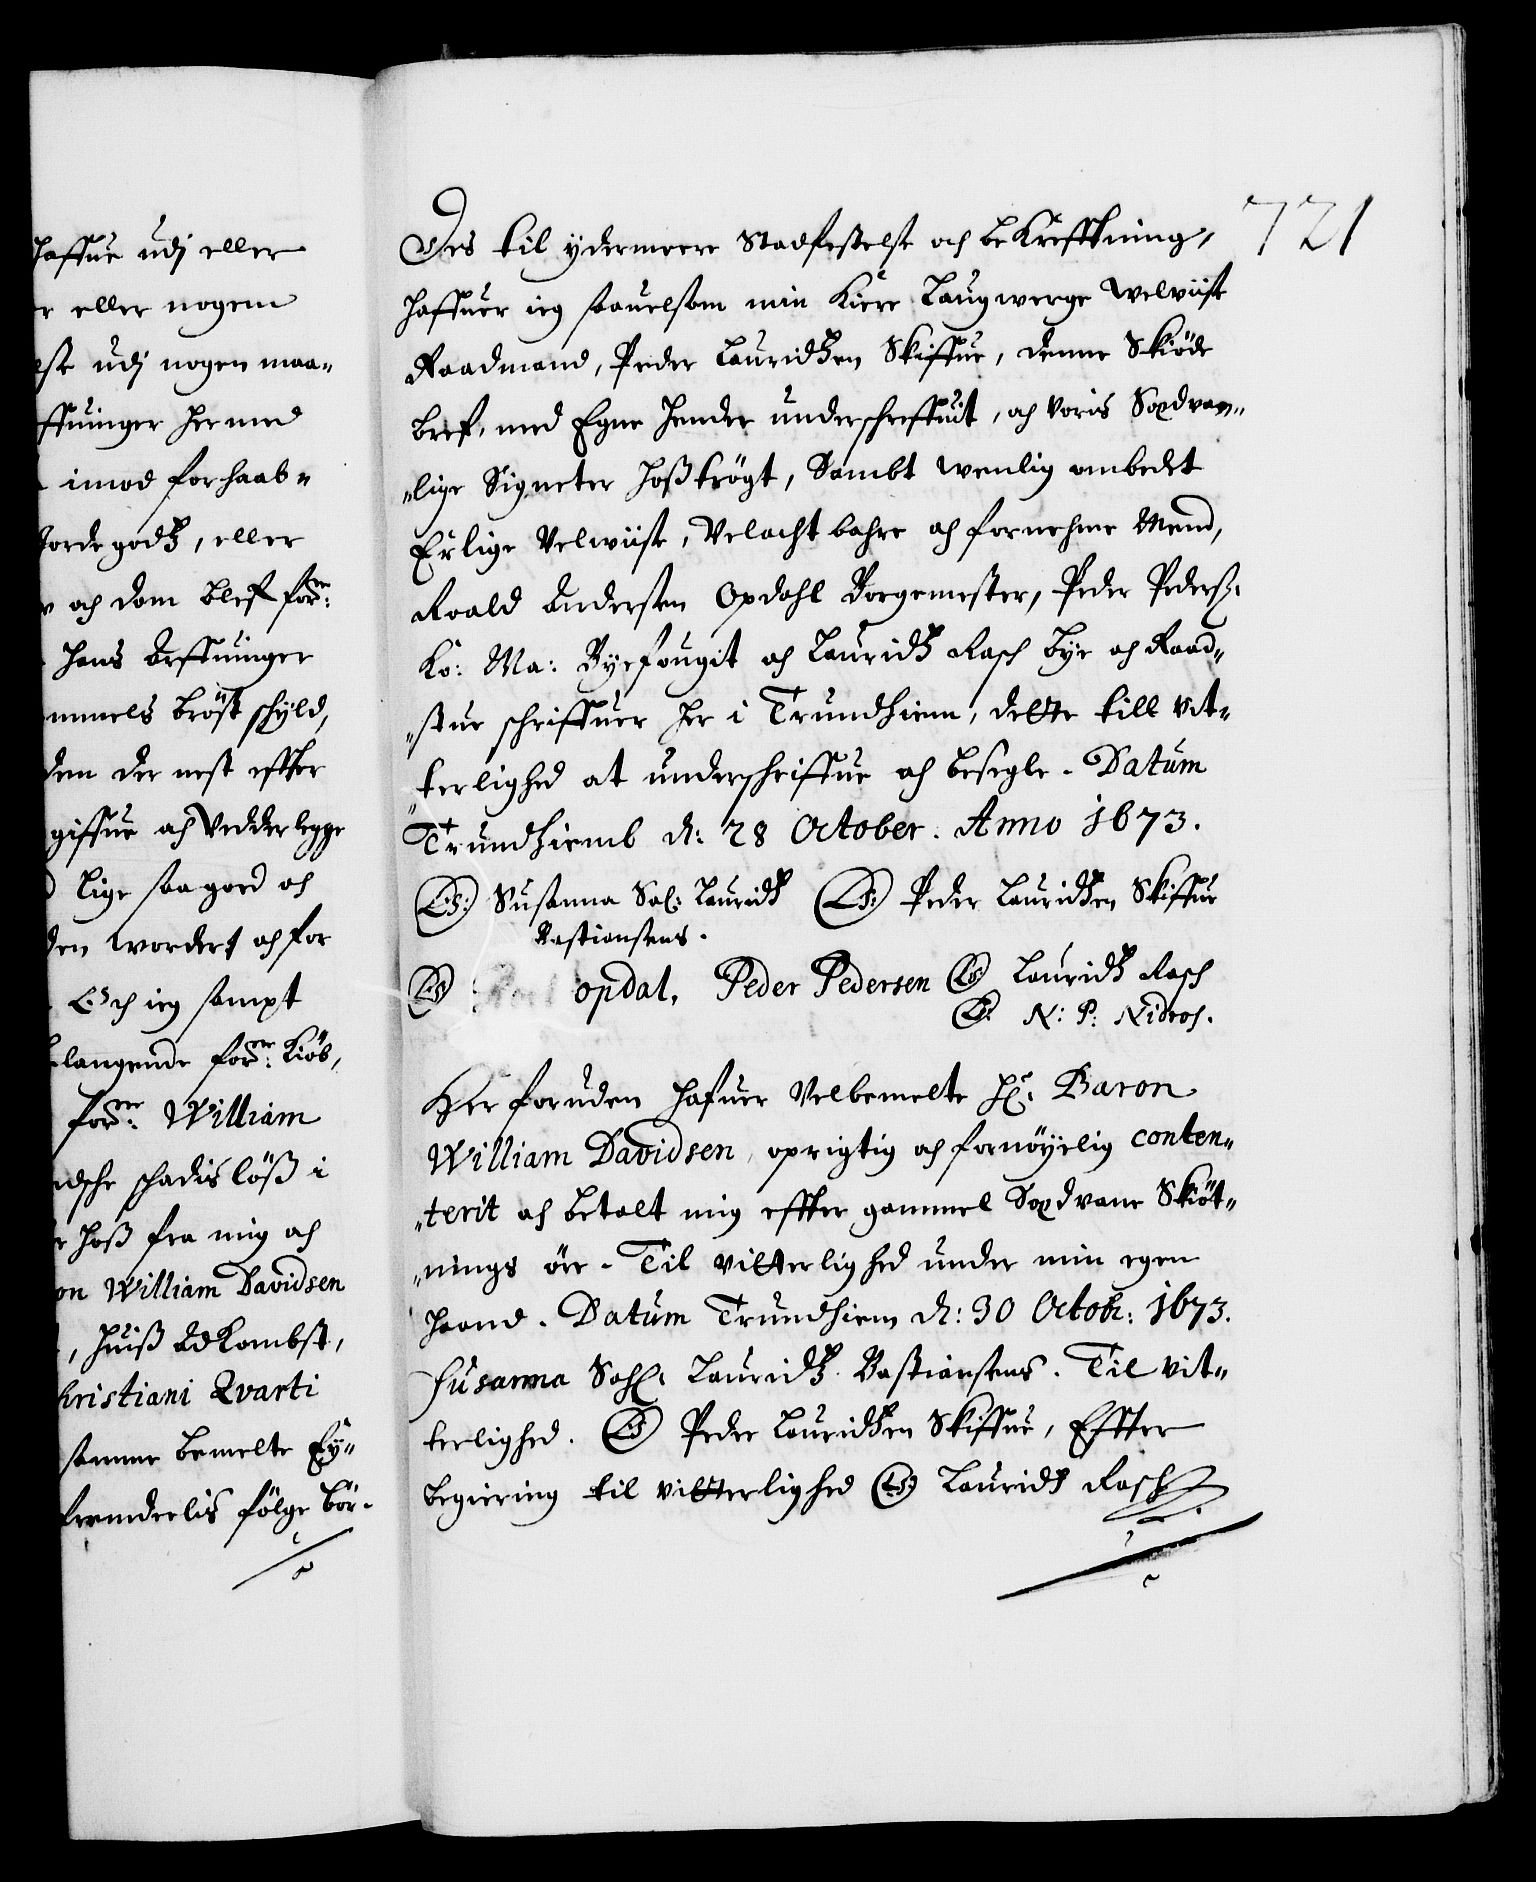 haffue udj eller
r eller nogen
lse udj nogen maa„
ffuinger hermed
imod forhaab„
Jordegodtz, eller
och dom bleff forne:
hans Arffuinger
mmels bröst schyld,
dem der nest effter
giffue och Vedderlegge
lige saa god och
den worders och for
Och ieg sampt
langende forne: Kiöb,
forne: William
schadislöß i
hoß fra mig och
on William Davidsen
, huiß Adkombst,
hristiani Qvarti
samme bemelte Ey„
fremdeelis fölge bör.
721
Des til ydermeere Stadfestelse och bekrefftning,
haffuer ieg saauelsom min kiere Laugwerge Welviise
Raadmand, Peder Lauridtzen Skiffue, denne Skiöde
bref, med Egne hender underschreffuit, och voris Sædvan„
„lige Signeter hoßtrögt, Sambt wenlig ombedet
Erlige Velwiise, Velachtbahre och fornehme Mend,
Roald Andersen Opdahl Borgemester, Peder Peders:
Ko: Ma: Byefougit och Lauridtz Rasch bye och Raad„
„stue schriffuer her i Trundhiem, dette till vit„
„terlighed at underschriffue och besegle. Datum
Trundhiemb d: 28 October. Anno 1673.
LS: Susanna Sal: Lauridtz LS: Peder Lauridtzen Skiffue
Bastiansens.
LS opdal, Peder Pedersen LS Lauridtz Rasch
LS. N: P: Nidros.
Her foruden hafuer Velbemelte Hr: Baron
William Davidsen, oprigtig och fornöyelig conten„
„terit och betalt mig effter gammel Sædvane Skiöt„
„nings öre. Til vitterlighed under min egen
haand. Datum Trundhiem d: 30 Octobr: 1673.
Susanna Sahl: Lauridtz Bastiansens. Til vit„
terlighed. LS Peder Lauridtzen Skiffue, Effter
begiering til vitterlighed LS Lauridtz Rasch